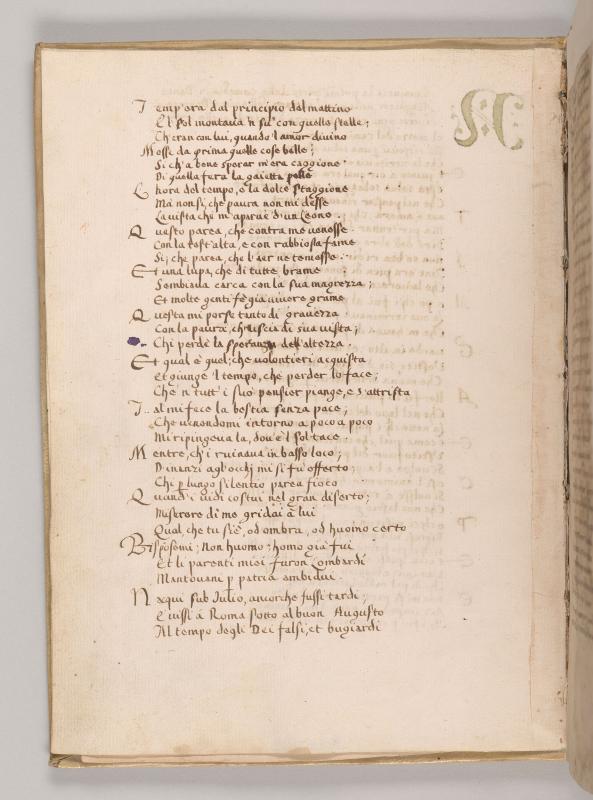 Temp'era dal principio del mattino
E'l sol montava 'n su' con quelle stelle;
Ch'eran con lui, quando l'amor divino
Mosse da prima quelle cose belle;
Si ch'a bene sperar m'era caggione
Di quella fera la gaietta pelle
L hora del tempo, e la dolce staggione
Ma non si, che paura non mi desse
La vista che m'aparve d'un Leone.
Questo parea, che contra me venesse
Con la test'alta, e con rabbiosa fame
Si, che parea, che l'aer ne temesse.
Et una lupa, che di tutte brame
Sembiava carca con la sua magrezza;
Et molte genti fe gia vivere grame
Questa mi porse tanto di gravezza
Con la paura, ch'uscia di sua vista;
Chi perde la speranza dell'altezza.
Et qual è quel; che volontieri acquista
Et giunge 'l tempo, che perder lo face;
Che 'n tutt'i suo' pensier piange, e s'attrista
Tal mi fece la bestia senza pace;
Che venendomi intorno a poco a poco
Mi ripingeva la, dov'e'l sol tace.
Mentre, ch'i ruinava in basso loco;
Dinanzi agl'occhj mi si fu offerto;
Chi p lungo silentio parea fioco
Quand'i vidi costui nel gran diserto;
Miserere di me gridai à lui
Qual, che tu sie, od ombra, od huomo certo
Risposemi; Non huomo; homo gia fui
Et li parenti miei furon Lombardi
Mantovani p patria ambidui.
Nacqui sub Julio, ancorche fussi tardi;
E vissi á Roma sotto al buon Augusto
Al tempo degli Dei falsi, et bugiardi